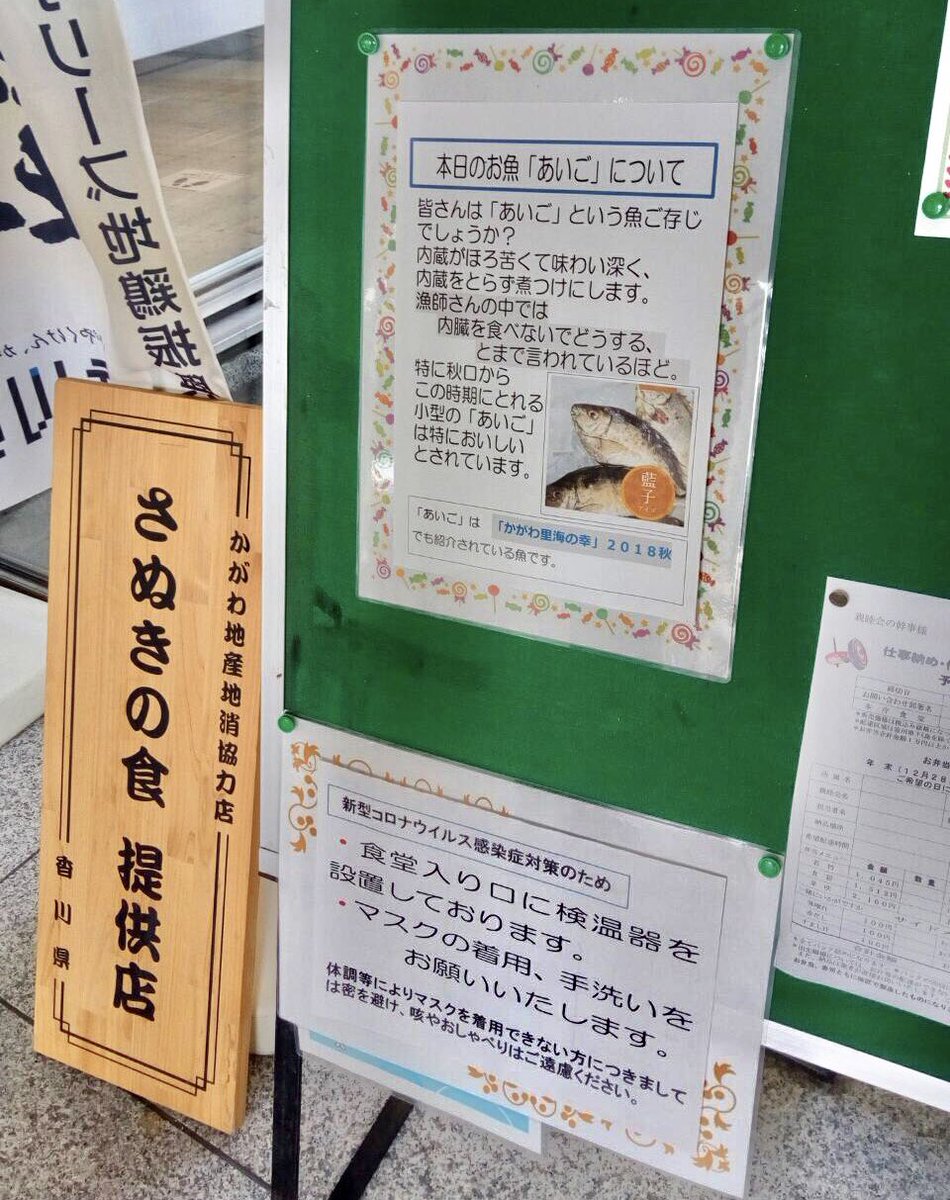 リーブ地鶏振
かがわ地産地消協力店
さぬきの食 提供店
香川県
本日のお魚「あいご」について
皆さんは「あいご」という魚ご存じ
でしょうか？
内蔵がほろ苦くて味わい深く、
内蔵をとらず煮つけにします。
漁師さんの中では
内臓を食べないでどうする、
とまで言われているほど。
特に秋口から
この時期にとれる
小型の「あいご」
は特においしい
とされています。
藍子
アイゴ
「あいご」は 「かがわ里海の幸」２０１８秋
でも紹介されている魚です。
新型コロナウイルス感染症対策のため
・食堂入り口に検温器を
設置しております。
・マスクの着用、手洗いを
お願いいたします。
体調等によりマスクを着用できない方につきまして
は密を避け、咳やおしゃべりはご遠慮ください。
親睦会の幹事様
仕事納め・
予
締切日
お問い合わせ部署名
本庁食堂
お弁当
年末（12月28
ご希望の日に
金額
数量
1,045円